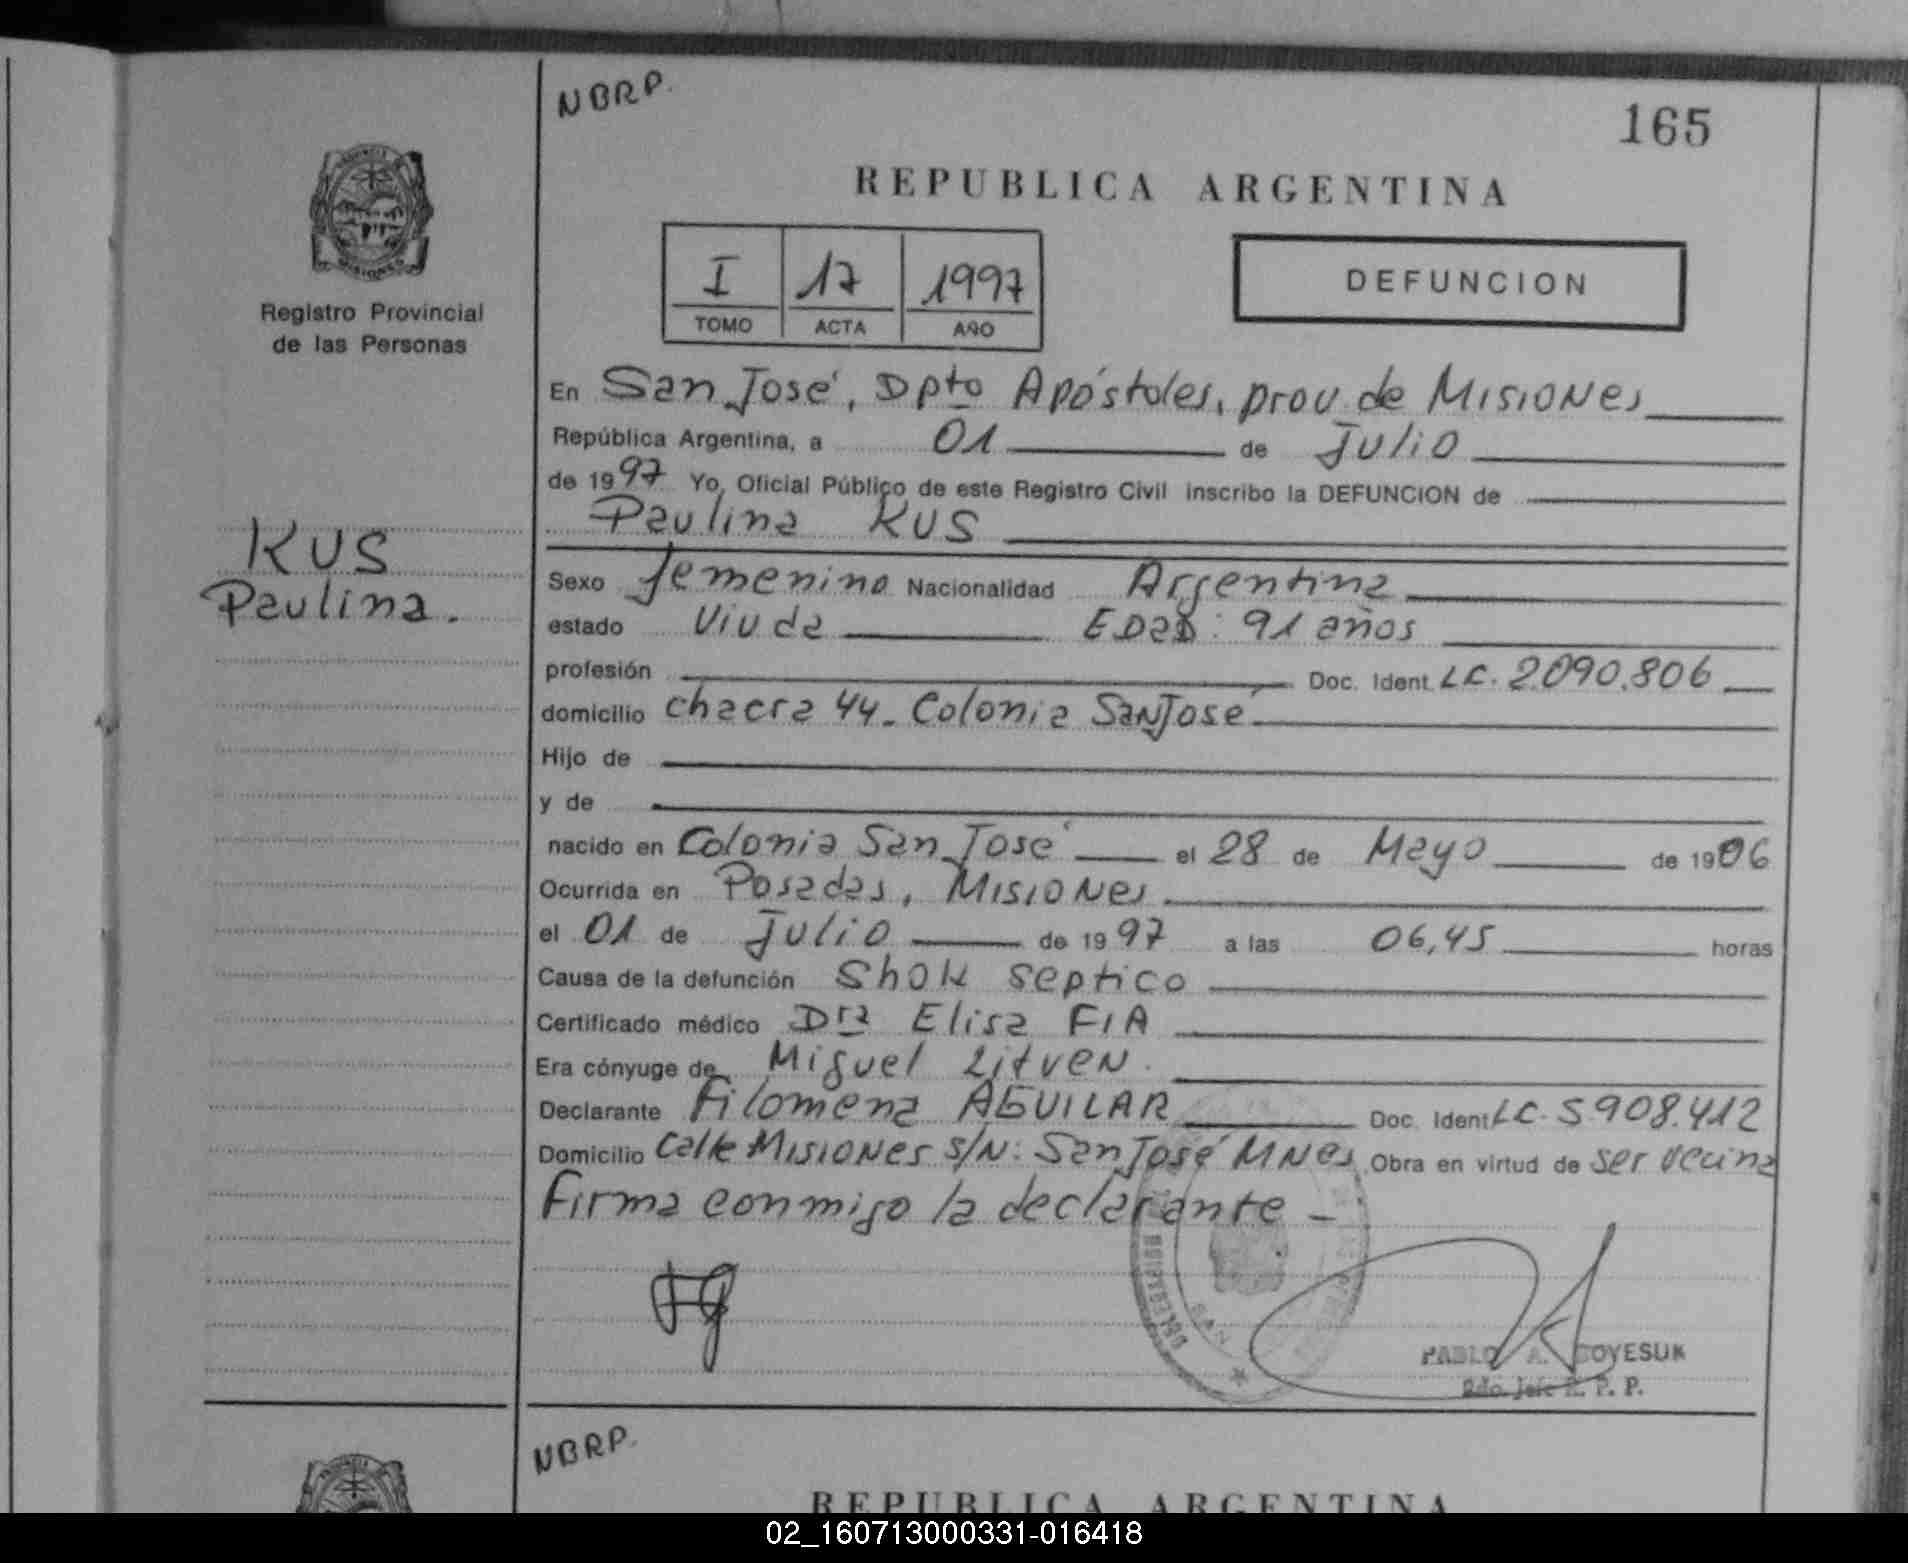 NBRP.
165
REPUBLICA ARGENTINA
I 17 1997
TOMO ACTA AÑO
DEFUNCION
PROVINCIA DE
MISIONES
Registro Provincial
de las Personas
KUS
Paulina.
En San José, Dpto Apóstoles, prov. de MISIONES
República Argentina, a 01 de Julio
de 1997 Yo, Oficial Público de este Registro Civil inscribo la DEFUNCION de
Paulina KUS
Sexo femenino Nacionalidad Argentina
estado Viuda EDAD: 91 años
profesión Doc. Ident. LC. 2.090.806
domicilio chacra 44. Colonia San José
Hijo de
y de
nacido en Colonia San José el 28 de Mayo de 1906
Ocurrida en Posadas, MISIONES
el 01 de Julio de 1997 a las 06,45 horas
Causa de la defunción Shok septico
Certificado médico Dra Elisa FIA
Era cónyuge de Miguel Litven.
Declarante Filomena AGUILAR Doc. Ident LC. 5908.412
Domicilio Calle MISIONES s/N: San José MNES Obra en virtud de ser vecina
Firma conmigo la declarante -
DELEGACION
SAN
PABLO A. COYESUK
2do. Jefe R. P. P.
NBRP.
REPUBLICA ARGENTINA
02_160713000331-016418